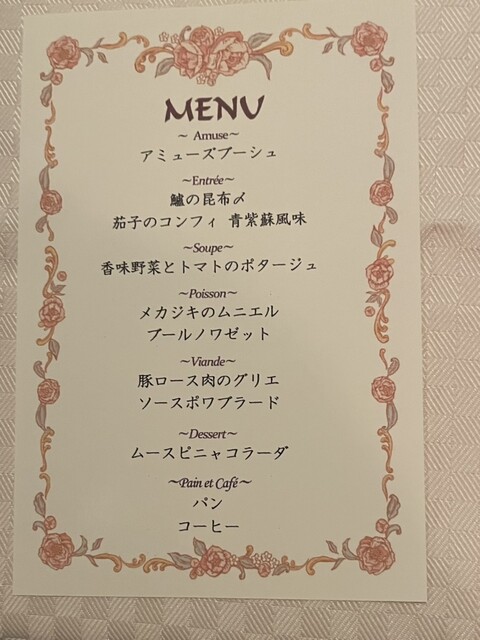 MENU
～ Amuse～
アミューズブーシュ
～Entrée～
鱸の昆布〆
茄子のコンフィ 青紫蘇風味
～Soupe～
香味野菜とトマトのポタージュ
～Poisson～
メカジキのムニエル
ブールノワゼット
～Viande～
豚ロース肉のグリエ
ソースポワブラード
～Dessert～
ムースピニャコラーダ
～Pain et Café～
パン
コーヒー